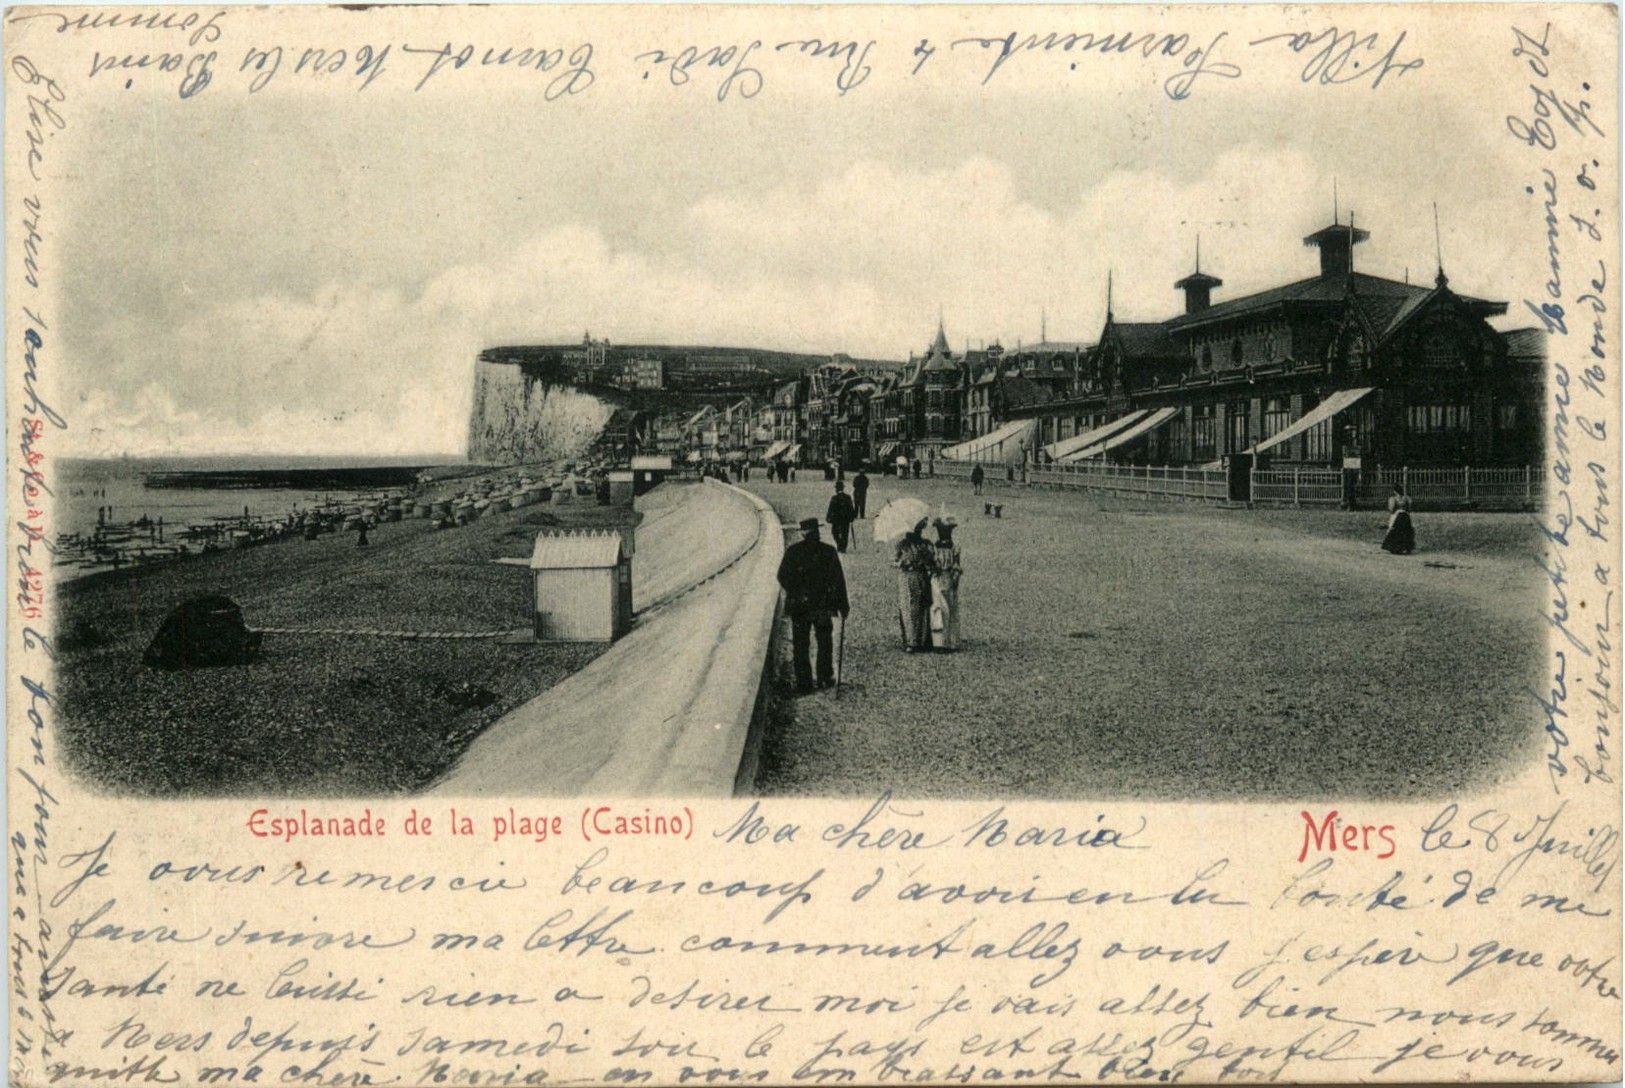 Villa Farniente 4 Rue Sadi Carnot Mers les Bains
Somme
Esplanade de la plage (Casino)
Mers
le 8 Juillet
Ma chère Maria
Je vous remercie beaucoup d'avoir eu la bonté de me
faire suivre ma lettre comment allez vous j'espère que votre
santé ne laisse rien a desirer moi je vais assez bien nous sommes
a Mers depuis samedi soir le pays est assez gentil je vous
quitte ma chère Maria en vous embrassant bien fort
votre petite amie Nannie
bonjour a tous le Monde s. v. p.
Elise vous souhaite le bonjour ainsi
que a tous
4276